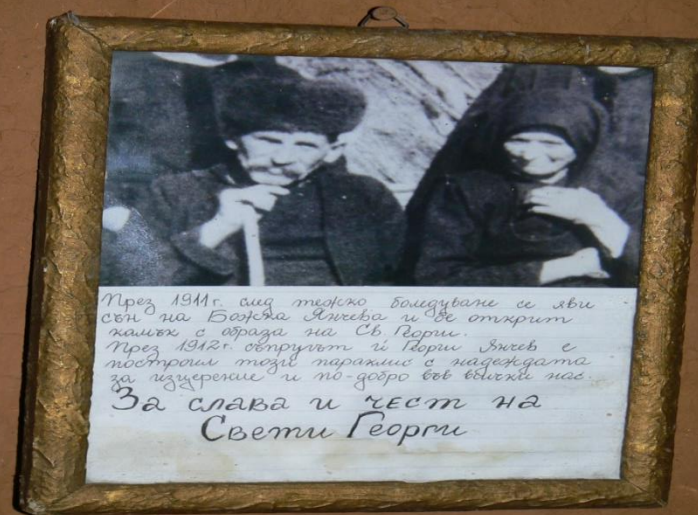 През 1911г. след тежко боледуване се яви
сън на Божка Янчева и бе открит
камък с образа на Св. Георги.
През 1912г. съпругът ѝ Георги Янчев е
построил този параклис с надеждата
за изцерение и по-добро във всички нас.
За слава и чест на
Свети Георги